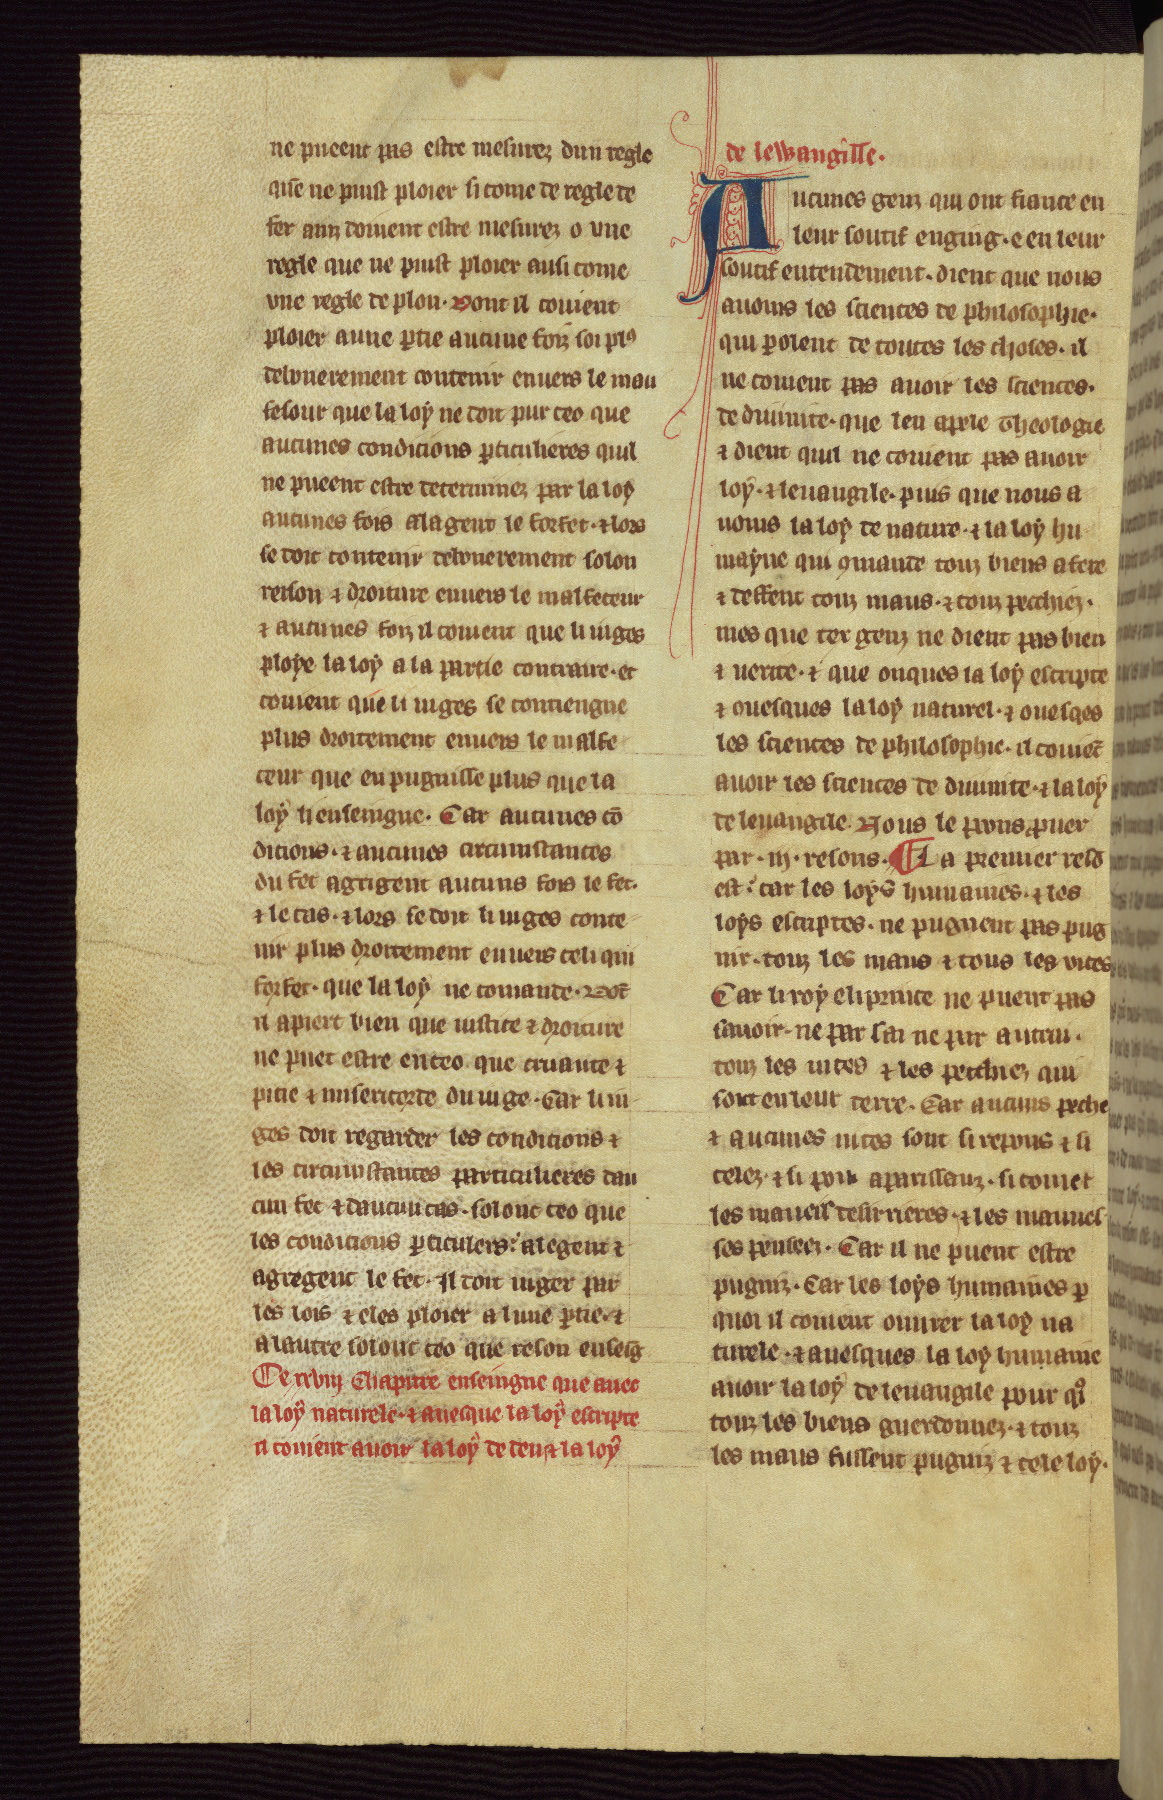 ne pueent pas estre mesurez dun regle
qise ne puist ploier si come de regle de
fer ainz doiuent estre mesurez o vne
regle que ne puist ploier ausi come
vne regle de plon. Dont il couient
ploier aune ꝑtie aucune foiz soi plꝰ
debonerement contenir enuers le mau
fesour que la loy ne doit pur ceo que
aucunes condicions ꝑticulieres quil
ne pueent estre determinez par la loy
aucunes fois alagent le forfet. ⁊ lors
se doit contenir debonerement solon
reison ⁊ droiture enuers le malfeteur
⁊ aucunes foiz il couient que li iuges
ploye la loy a la partie contraire. et
couient que li iuges se contiengne
plus droitement enuers le malfe
teur que en puguisse plus que la
loy li enseingne. Car aucunes cō
dicions. ⁊ aucunes circumstances
du fet agrigent aucuns fois le fet.
⁊ le cas. ⁊ lors se doit li iuges conte
nir plus droitement enuers celi qui
forfet. que la loy ne comande. Dōt
il apiert bien que iustice ⁊ droiture
ne puet estre en ceo que cruaute ⁊
pitie ⁊ misericorde du iuge. Car li iu
ges doit regarder les condicions ⁊
les circumstances particulieres dau
cun fet ⁊ daucun cas. solonc ceo que
les condicions ꝑticulers. alegent ⁊
agregent le fet. Il doit iuger par
les lois ⁊ eles ploier a lune ꝑtie. ⁊
a lautre solonc ceo que reson enseig
Ce xxviij Chapitre enseingne que auec
la loy naturele. ⁊ auesque la loy escripte
il couient auoir la loy de deu ⁊ la loy
de lewangille.
Aucunes genz qui ont fiance en
leur soutif enging. e en leur
soutif entendement. dient que nous
auoms les sciences de philosophie.
qui ꝑolent de toutes les choses. il
ne couient pas auoir les sciences.
de diuinite. que len apele Theologie
⁊ dient quil ne couient pas auoir
loy. ⁊ leuangile. puis que nous a
uoms la loy de nature. ⁊ la loy hu
mayne qui ꝯmande touz biens a fere
⁊ deffent touz maus. ⁊ touz pecchiez.
mes que cer genz ne dient pas bien
⁊ uerite. ⁊ que onques la loy escripte
⁊ ouesques la loy naturel. ⁊ ouesqes
les sciences de philosophie. il couiēt
auoir les sciences de diuinite. ⁊ la loy
de leuangile. Nous le poons ꝓuer
par .iij. resons. La premier resō
est. car les loys humaines. ⁊ les
loys escriptes. ne puguent pas pug
nir. touz les maus ⁊ tous les vices
Car li roy eli prince ne puent pas
sauoir. ne par sai ne par autrui.
touz les uices ⁊ les pecchiez qui
sont en leur terre. Car aucuns peche
⁊ aucunes uices sont si repons ⁊ si
celez. ⁊ si pou aparissanz. si come
les mauueis desirrieres. ⁊ les mauuei
ses pensees. Car il ne puent estre
puguiz. Car les loys humaines ꝑ
quoi il couient ouurer la loy na
turele. ⁊ auesques la loy humaine
auoir la loy de leuangile pour qͥ
touz les biens guerdonnez. ⁊ touz
les maus fussent puguiz ⁊ cele loy.